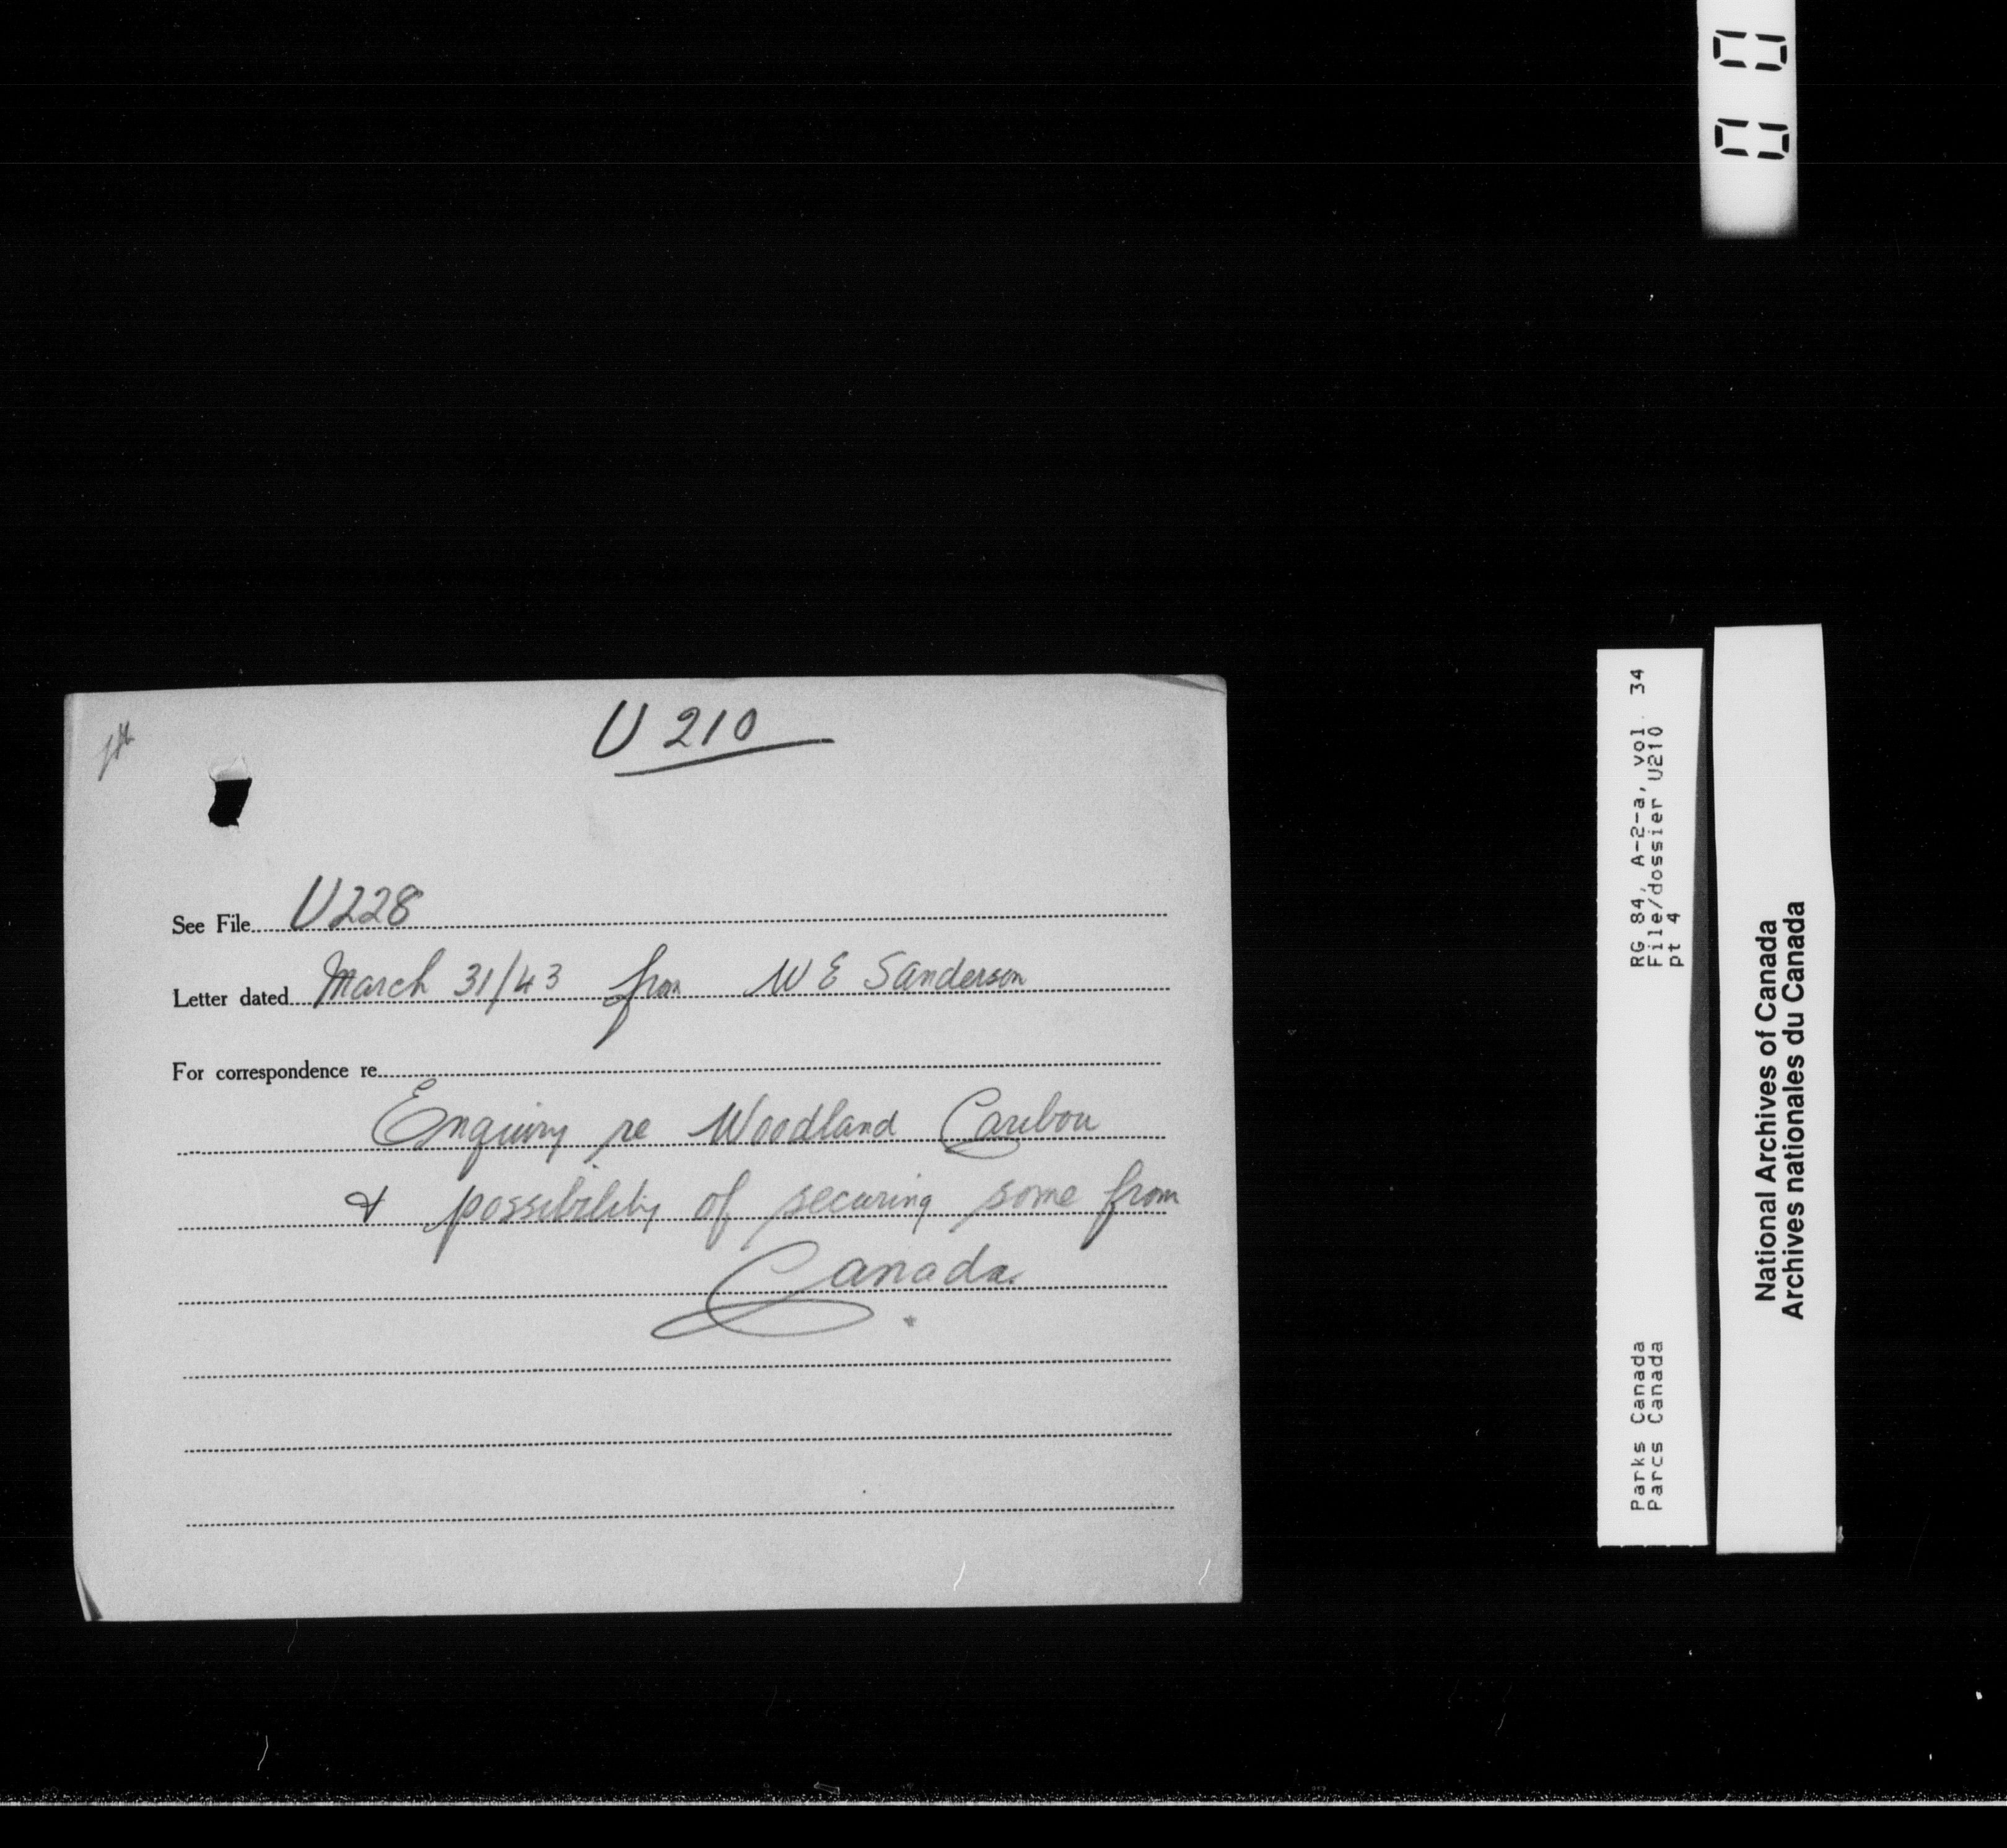 U 210
See File U228
Letter dated March 31/43 from W E Sanderson
For correspondence re
Enquiry re Woodland Caribou
& possibility of securing some from
Canada.
RG 84, A-2-a, vol. 34
File/dossier U210
pt 4
Parks Canada
Parcs Canada
National Archives of Canada
Archives nationales du Canada